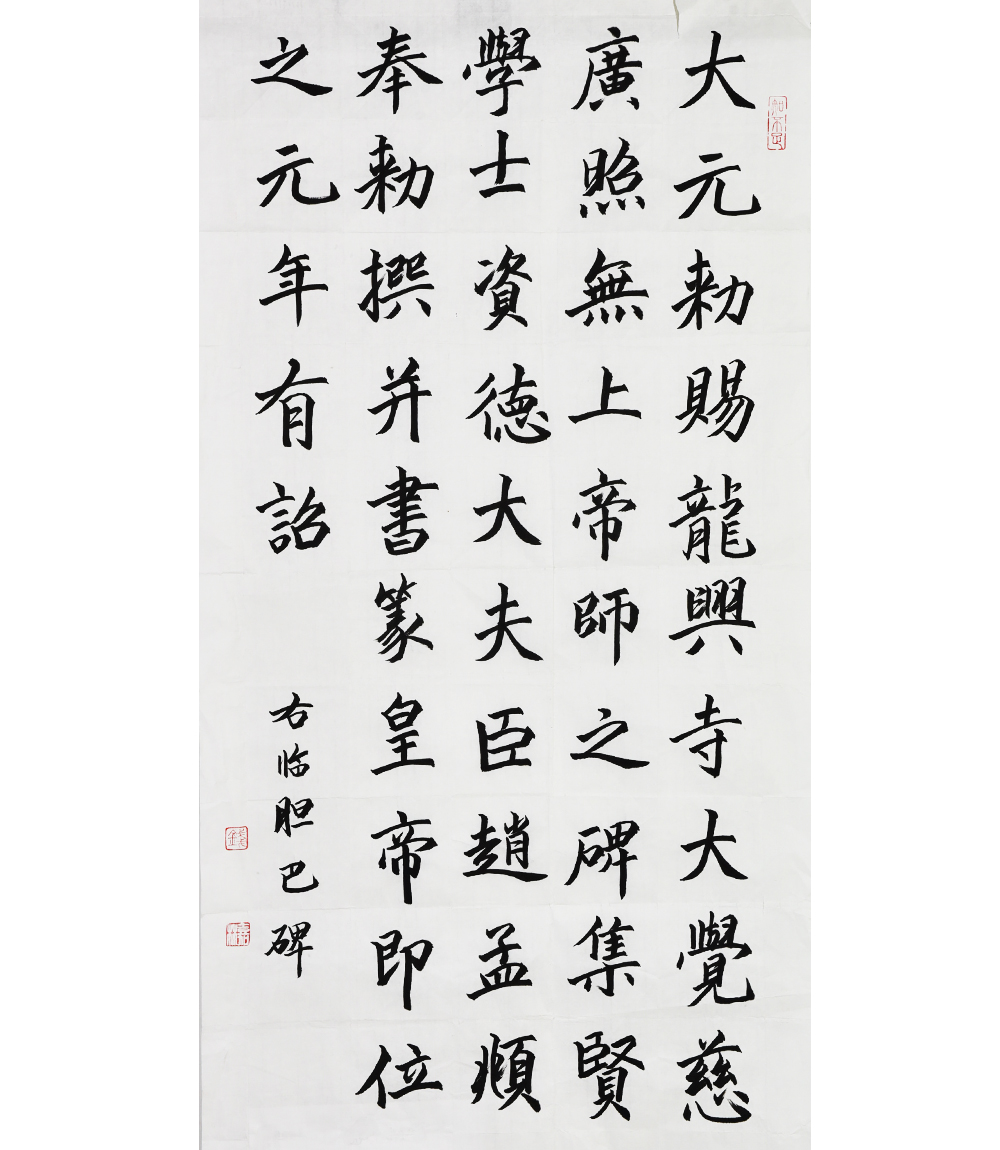 大元勅賜龍興寺大覺慈
廣照無上帝師之碑集賢
學士資德大夫臣趙孟頫
奉勅撰并書篆皇帝即位
之元年有詔
右临胆巴碑
錢